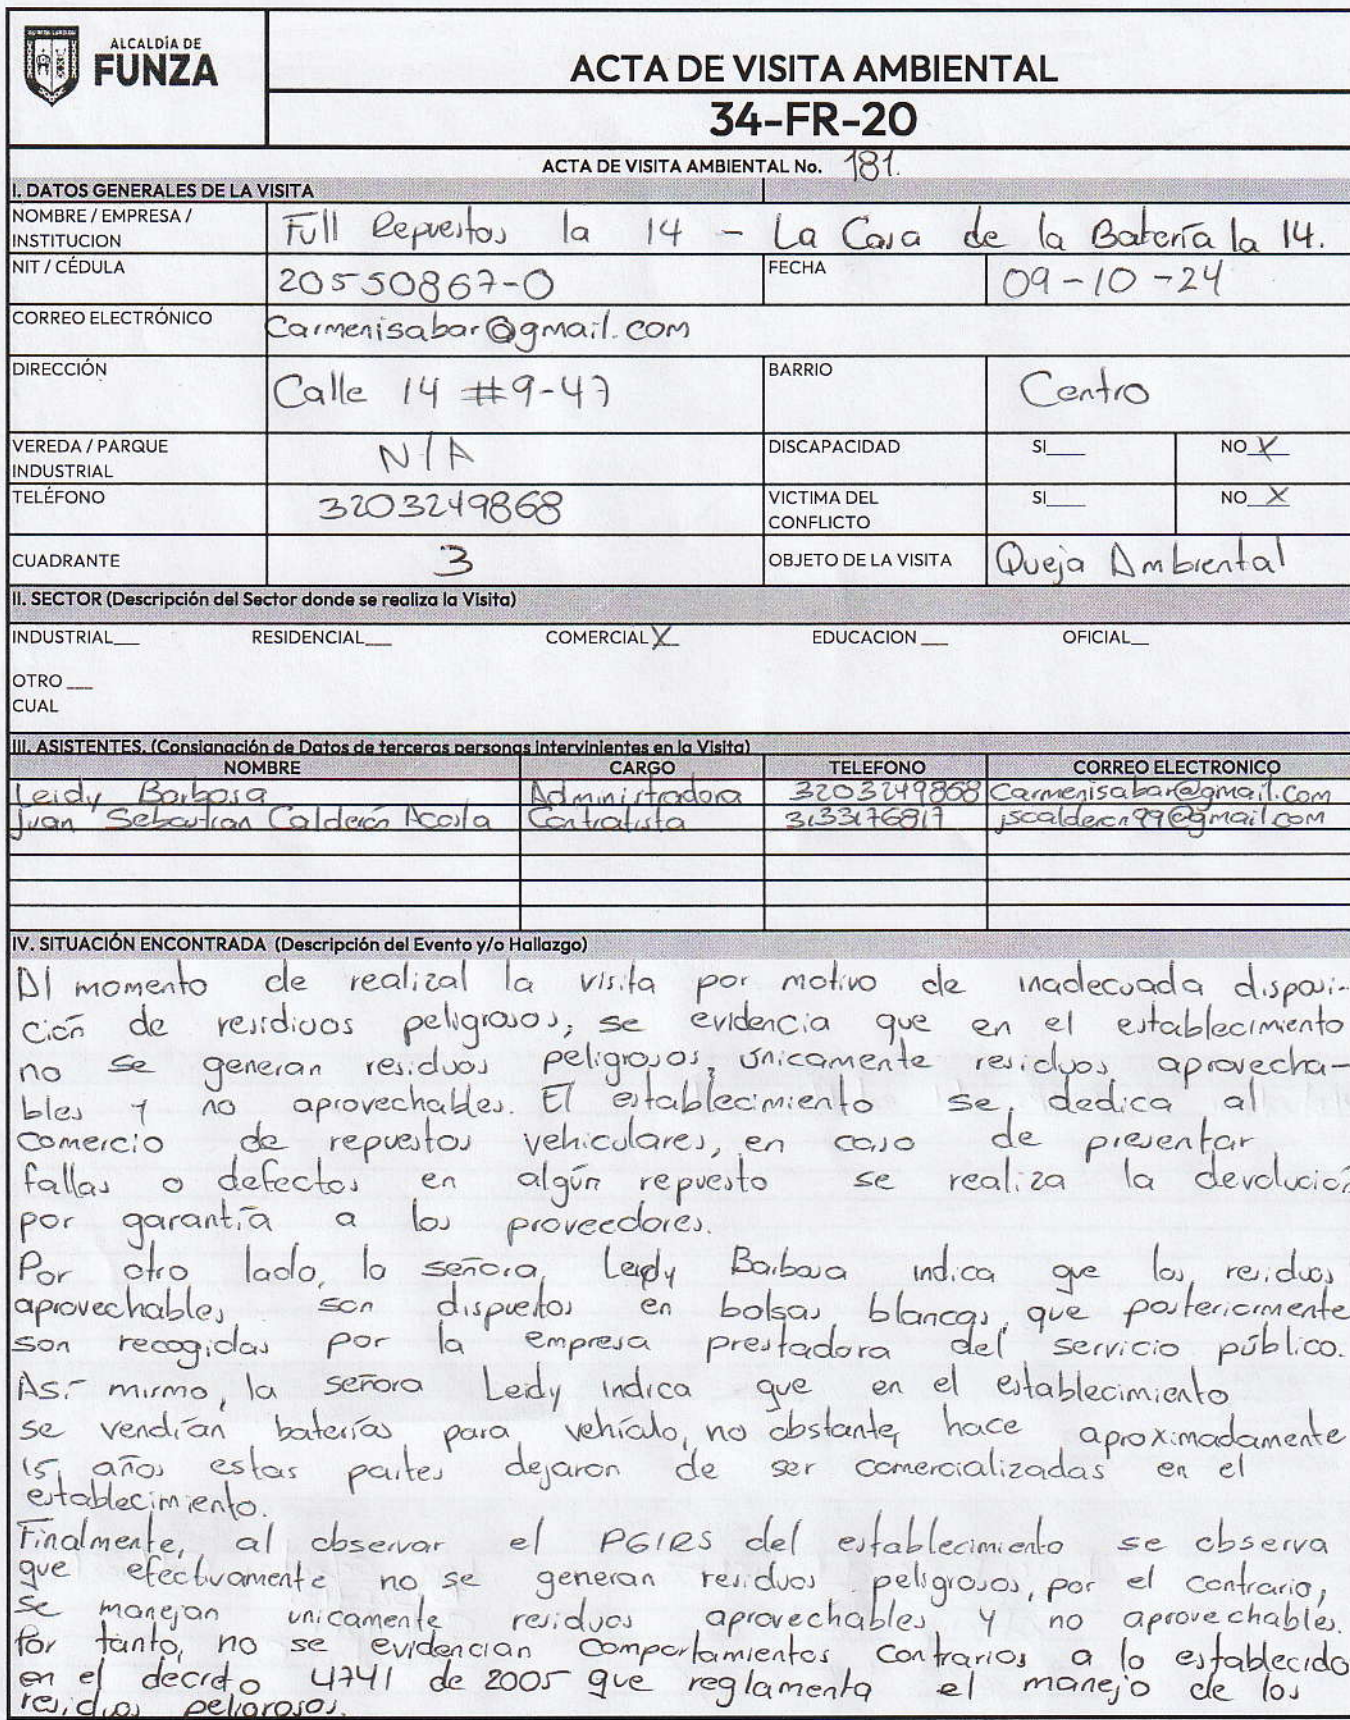 ALCALDÍA DE
FUNZA
ACTA DE VISITA AMBIENTAL
34-FR-20
ACTA DE VISITA AMBIENTAL No. 181.
I. DATOS GENERALES DE LA VISITA
NOMBRE / EMPRESA / INSTITUCION Full Repuestos la 14 - La Casa de la Batería la 14.
NIT / CÉDULA 20550867-0 FECHA 09-10-24
CORREO ELECTRÓNICO Carmenisabar@gmail.com
DIRECCIÓN Calle 14 #9-47 BARRIO Centro
VEREDA / PARQUE INDUSTRIAL N/A DISCAPACIDAD SI___ NO X
TELÉFONO 3203249868 VICTIMA DEL CONFLICTO SI___ NO X
CUADRANTE 3 OBJETO DE LA VISITA Queja Ambiental
II. SECTOR (Descripción del Sector donde se realiza la Visita)
INDUSTRIAL__ RESIDENCIAL__ COMERCIAL X EDUCACION __ OFICIAL__
OTRO __
CUAL
III. ASISTENTES. (Consignación de Datos de terceras personas intervinientes en la Visita)
NOMBRE CARGO TELEFONO CORREO ELECTRONICO
Leidy Barbosa Administradora 3203249868 Carmenisabar@gmail.com
Juan Sebastian Calderón Acosta Contratista 3133176817 jscalderon99@gmail.com
IV. SITUACIÓN ENCONTRADA (Descripción del Evento y/o Hallazgo)
Al momento de realizal la visita por motivo de inadecuada disposi-
ción de residuos peligrosos, se evidencia que en el establecimiento
no se generan residuos peligrosos, únicamente residuos aprovecha-
bles y no aprovechables. El establecimiento se dedica al
comercio de repuestos vehiculares, en caso de presentar
fallas o defectos en algún repuesto se realiza la devolución
por garantía a los proveedores.
Por otro lado, la señora Leidy Barbosa indica que los residuos
aprovechables son dispuestos en bolsas blancas, que posteriormente
son recogidas por la empresa prestadora del servicio público.
Así mismo, la señora Leidy indica que en el establecimiento
se vendían baterías para vehículo, no obstante, hace aproximadamente
15 años estas partes dejaron de ser comercializadas en el
establecimiento.
Finalmente, al observar el PGIRS del establecimiento se observa
que efectivamente no se generan residuos peligrosos, por el contrario,
se manejan unicamente residuos aprovechables y no aprovechables.
Por tanto, no se evidencian comportamientos contrarios a lo establecido
en el decreto 4741 de 2005 que reglamenta el manejo de los
residuos peligrosos.